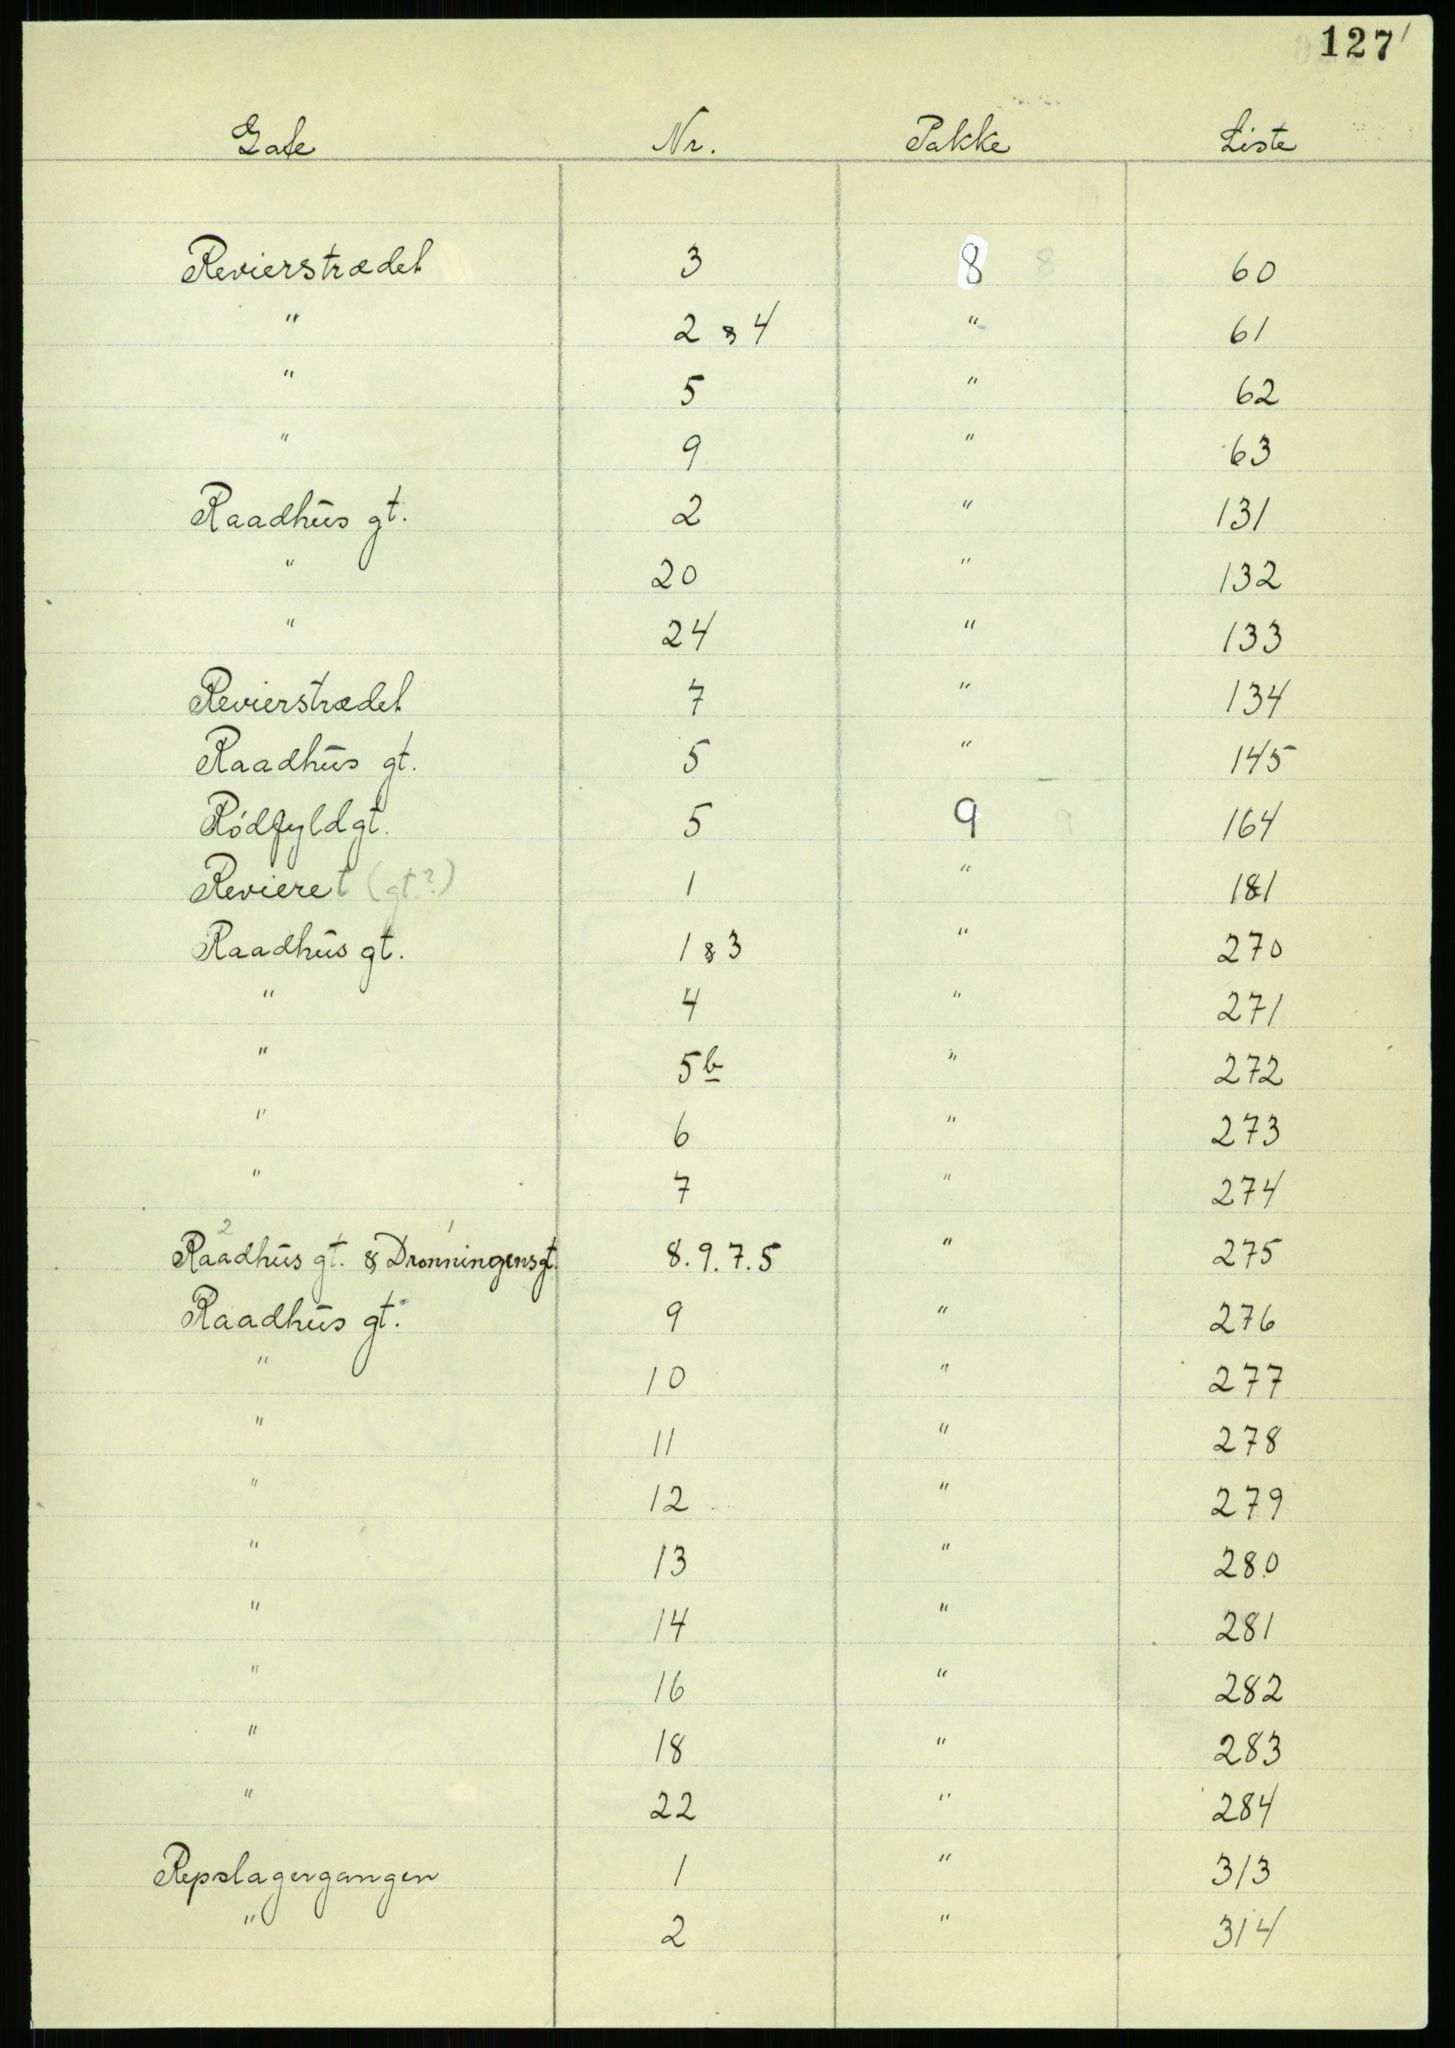 127
Gate Nr. Pakke Liste
Revierstrædet 3 8 60
" 2 & 4 " 61
" 5 " 62
" 9 " 63
Raadhus gt. 2 " 131
" 20 " 132
" 24 " 133
Revierstrædet 7 " 134
Raadhus gt. 5 " 145
Rödfyldgt. 5 9 164
Revieret (gt.?) 1 " 181
Raadhus gt. 1 & 3 " 270
" 4 " 271
" 5b " 272
" 6 " 273
" 7 " 274
2 1
Raadhus gt. & Dronningensgt. 8. 9. 7. 5 " 275
Raadhus gt. 9 " 276
" 10 " 277
" 11 " 278
" 12 " 279
" 13 " 280
" 14 " 281
" 16 " 282
" 18 " 283
" 22 " 284
Repslagergangen 1 " 313
" 2 " 314